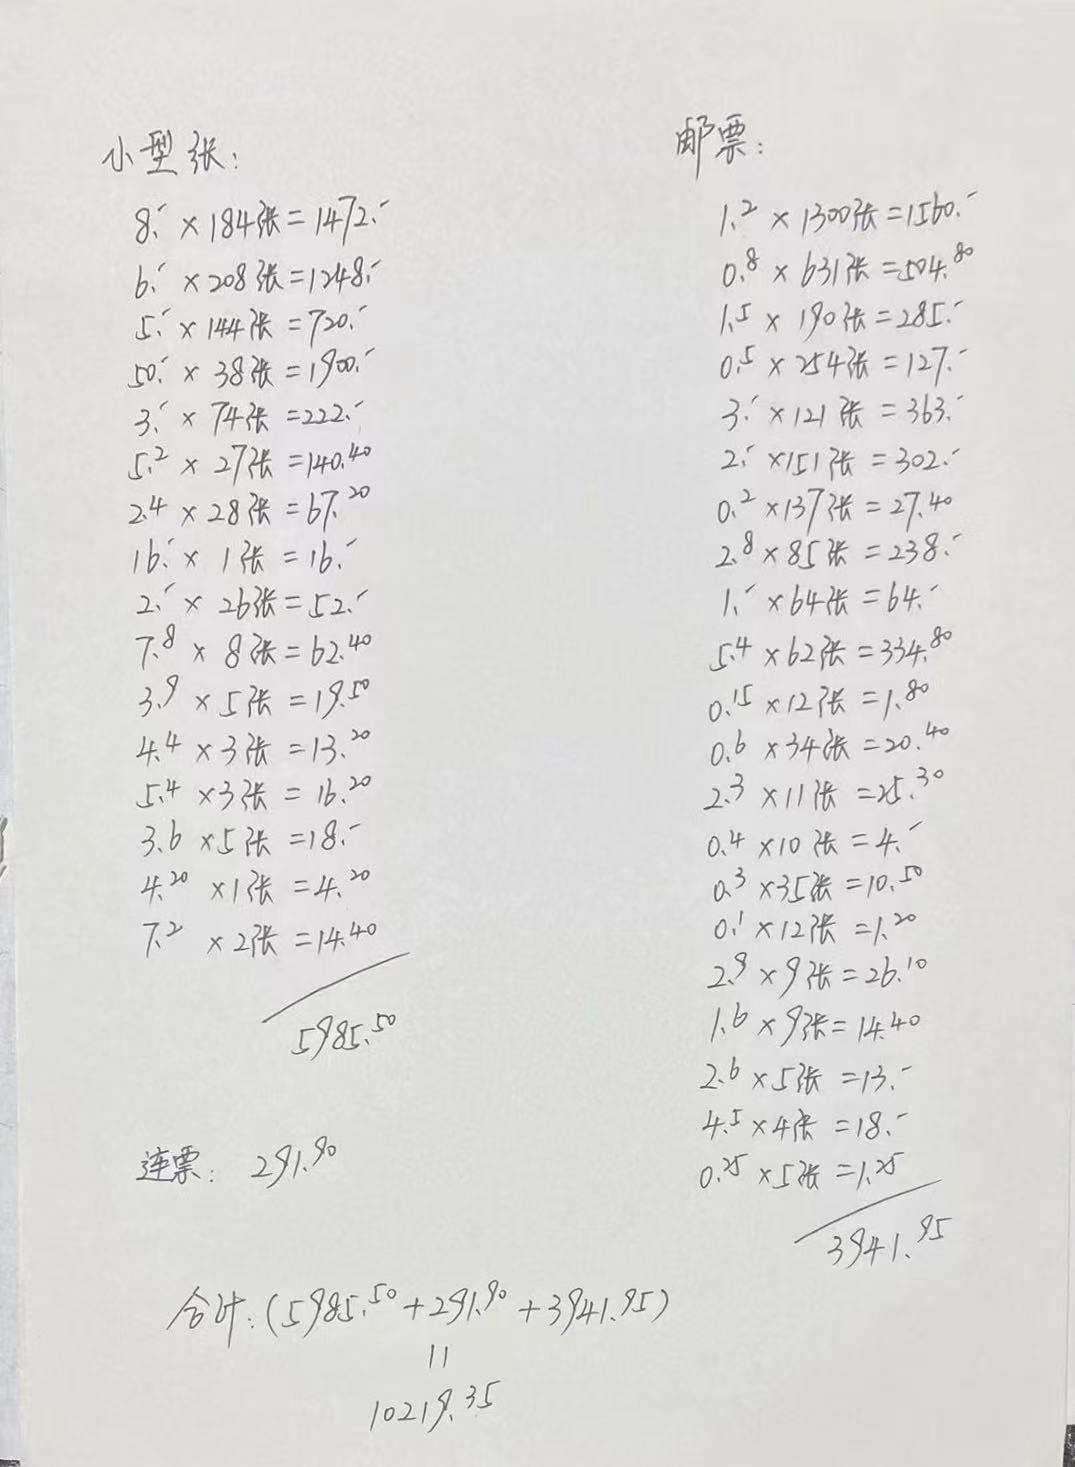 小型张:
8.- × 184张 = 1472.-
6.- × 208张 = 1248.-
5.- × 144张 = 720.-
50.- × 38张 = 1900.-
3.- × 74张 = 222.-
5.2 × 27张 = 140.40
2.4 × 28张 = 67.20
16.- × 1张 = 16.-
2.- × 26张 = 52.-
7.8 × 8张 = 62.40
3.9 × 5张 = 19.50
4.4 × 3张 = 13.20
5.4 × 3张 = 16.20
3.6 × 5张 = 18.-
4.20 × 1张 = 4.20
7.2 × 2张 = 14.40
5985.50
连票: 291.90
邮票:
1.2 × 1300张 = 1560.-
0.8 × 631张 = 504.80
1.5 × 190张 = 285.-
0.5 × 254张 = 127.-
3.- × 121张 = 363.-
2.- × 151张 = 302.-
0.2 × 137张 = 27.40
2.8 × 85张 = 238.-
1.- × 64张 = 64.-
5.4 × 62张 = 334.80
0.15 × 12张 = 1.80
0.6 × 34张 = 20.40
2.3 × 11张 = 25.30
0.4 × 10张 = 4.-
0.3 × 35张 = 10.50
0.1 × 12张 = 1.20
2.9 × 9张 = 26.10
1.6 × 9张 = 14.40
2.6 × 5张 = 13.-
4.5 × 4张 = 18.-
0.25 × 5张 = 1.25
3941.95
合计: (5985.50 + 291.90 + 3941.95)
=
10219.35